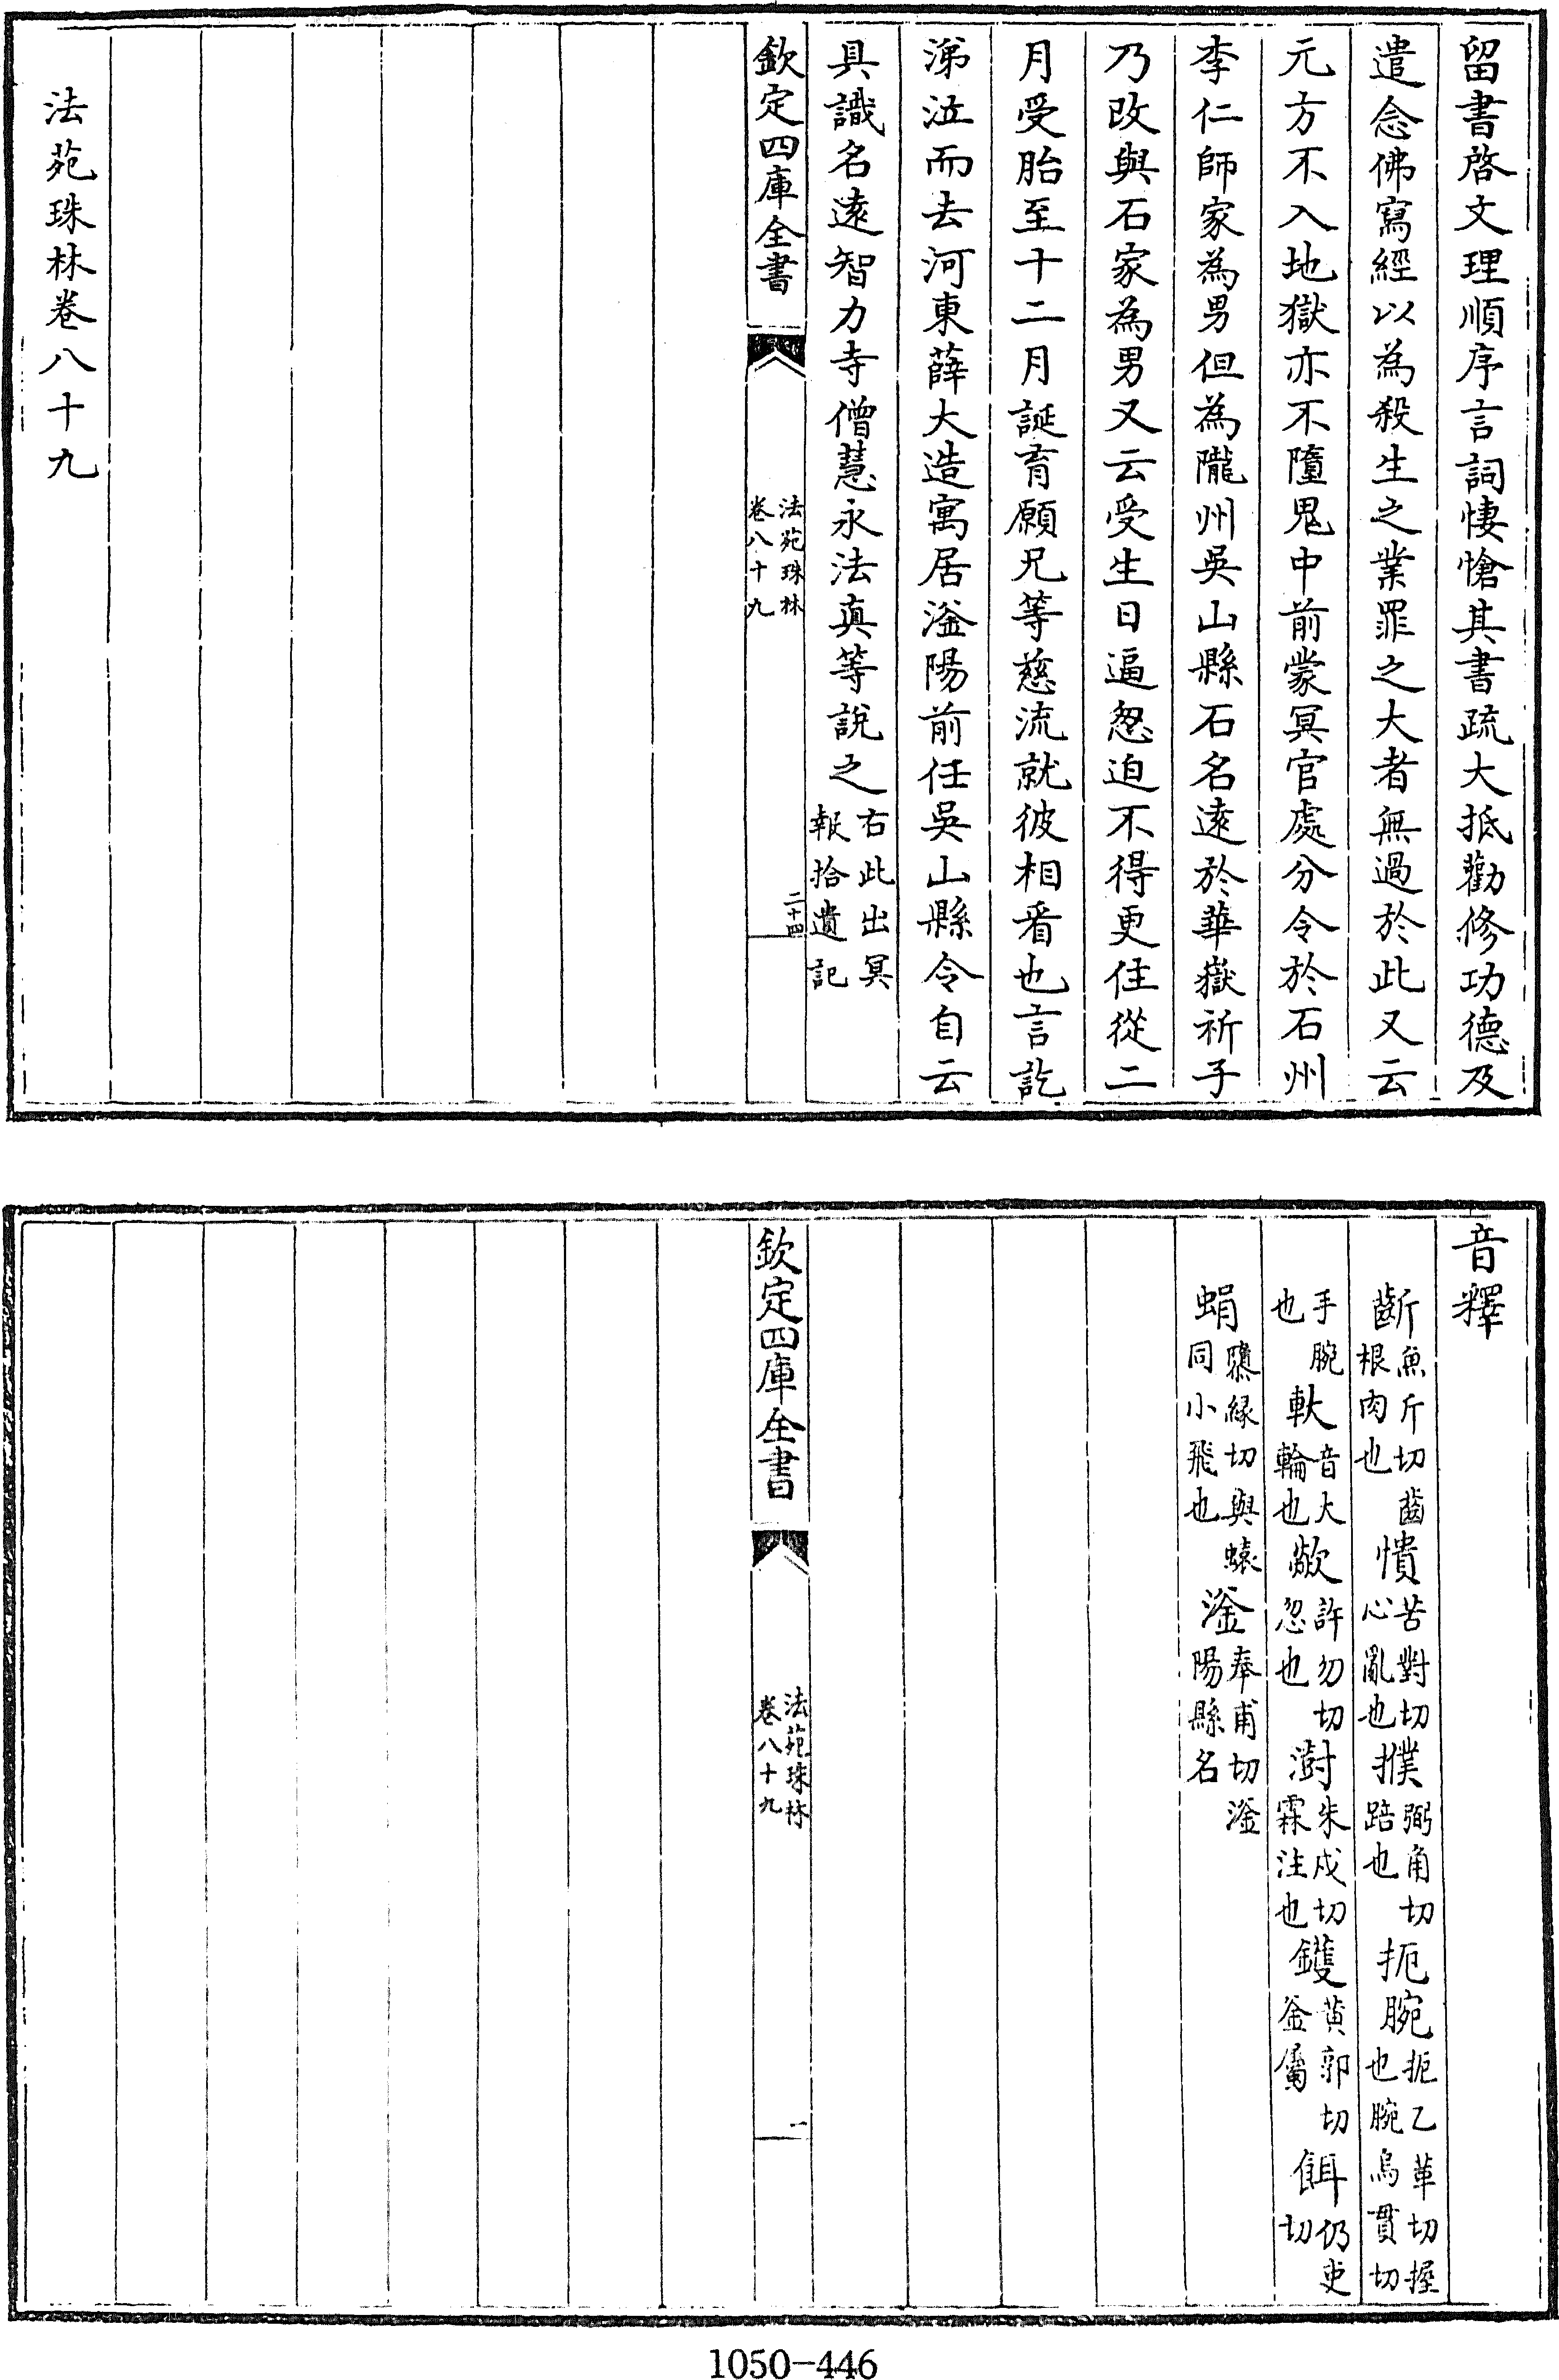 留書啓文理順序言詞悽愴其書疏大抵勸修功德及
遣念佛寫經以為殺生之業罪之大者無過於此又云
元方不入地獄亦不墮鬼中前蒙冥官處分令於石州
李仁師家為男但為隴州吳山縣石名逺於華嶽祈子
乃改與石家為男又云受生日逼怱迫不得更住從二
月受胎至十二月誕育願兄等慈流就彼相看也言訖
涕泣而去河東薛大造寓居滏陽前任吳山縣令自云
具識名逺智力寺僧慧永法真等說之右此出冥
報拾遺記
欽定四庫全書
法苑珠林
卷八十九
二十四
法苑珠林卷八十九
音釋
齗魚斤切齒
根肉也
憒苦對切
心亂也
撲弼角切
踣也
扼腕扼乙革切握
也腕烏貫切
手腕
也
軑音大
輪也
歘許勿切
忽也
澍朱戍切
霖注也
鑊黄郭切
釜屬
餌仍吏
切
蜎隳縁切與蠉
同小飛也
滏奉甫切滏
陽縣名
欽定四庫全書
法苑珠林
卷八十九
一
1050-446